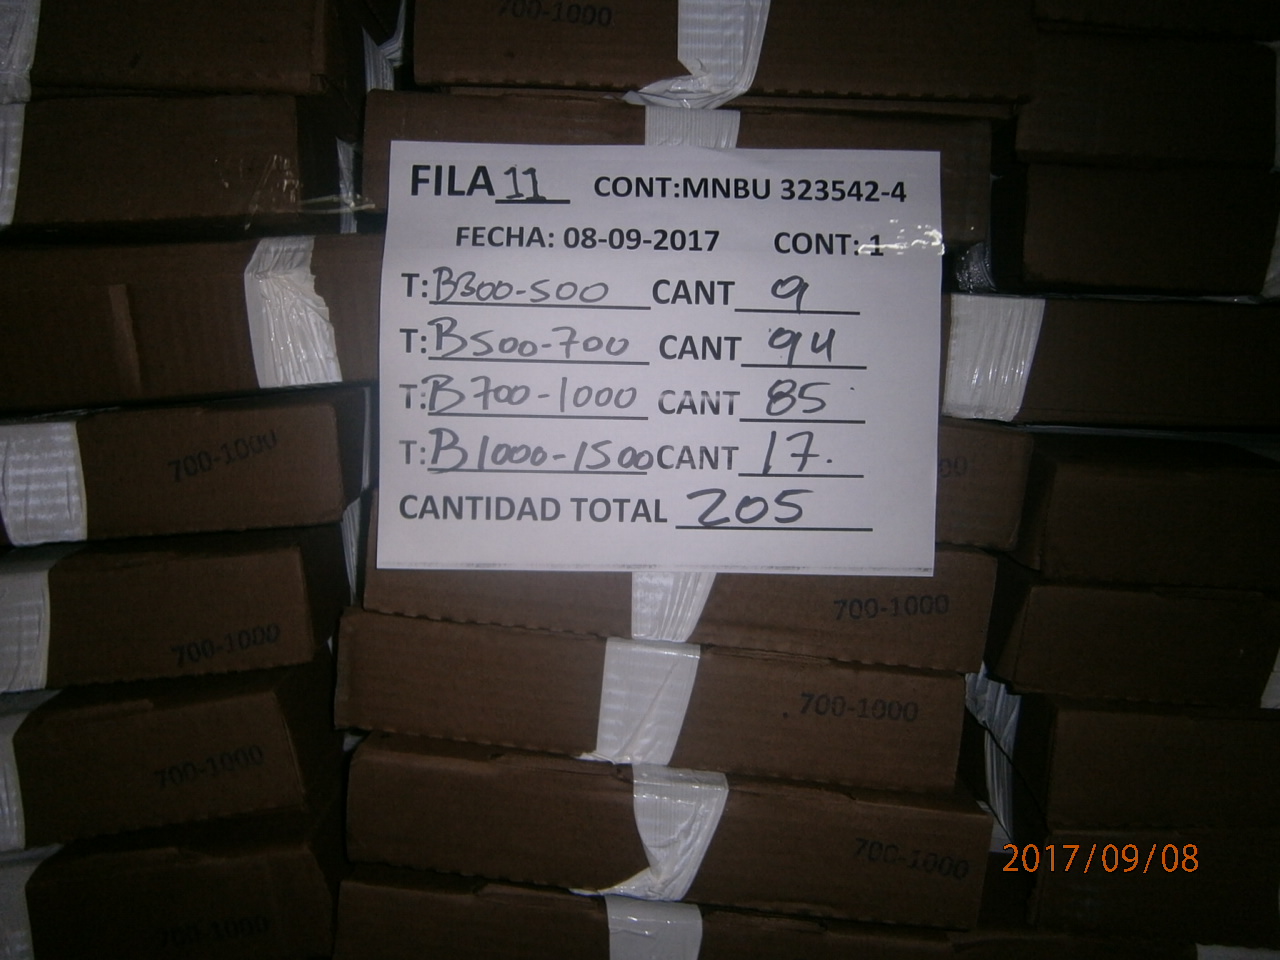 700-1000
FILA 11 CONT:MNBU 323542-4
FECHA: 08-09-2017 CONT: 1
T: B300-500 CANT 9
T: B500-700 CANT 94
T: B700-1000 CANT 85
T: B1000-1500 CANT 17.
CANTIDAD TOTAL 205
700-1000
700-1000
700-1000
700-1000
700-1000
700-1000
700-1000
2017/09/08